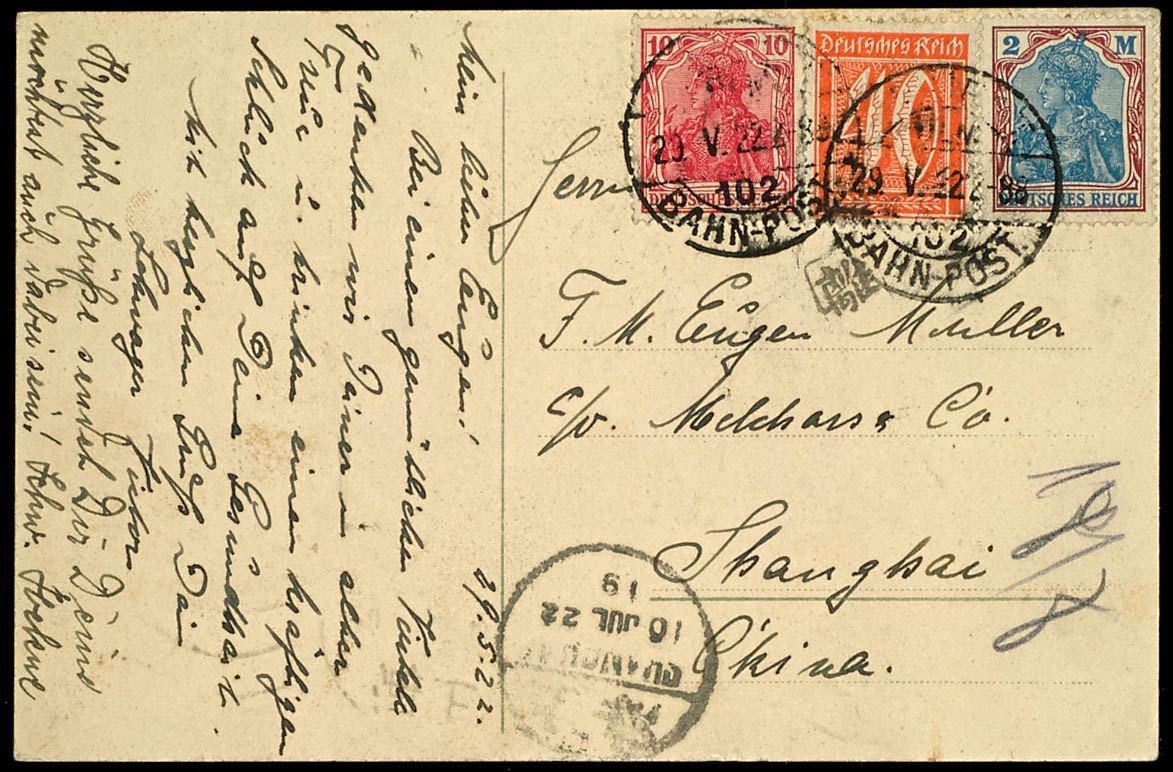 29.5.22.
Mein lieber Eugen!
Bei einem gemütlichen
gedenken wir Deiner in alter
Treue u. trinken einen kräftigen
Schluck auf Deine Gesundheit.
Mit herzlichem Gruß Dein
Schwager
Herzliche Grüße sendet Dir Deine
auch dabei sein!
10 10
DEUTSCHES REICH
Deutsches Reich
40
2 M
DEUTSCHES REICH
29 V. 22
102
BAHN-POST
29 V. 22
102
BAHN-POST
Herrn
F. M. Eugen Müller
c/o. Melchers & Co.
Shanghai
China.
SHANGHAI
16 JUL 22
19